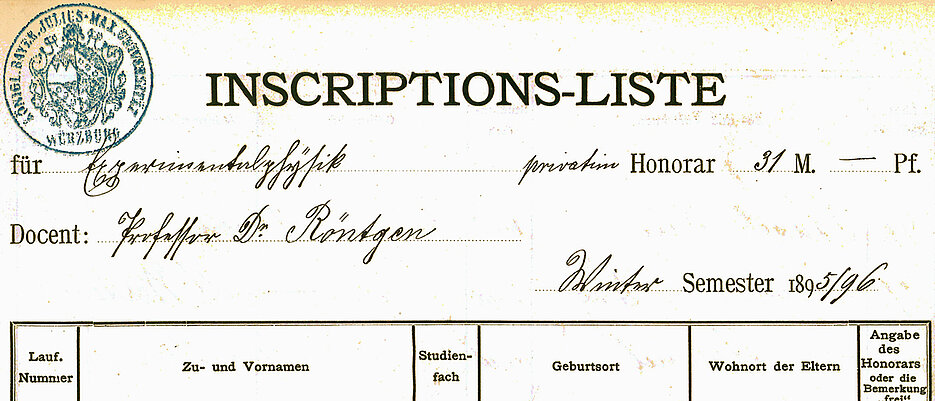 KÖNIGL. BAYER. JULIUS-MAX. UNIVERSITÄT
WÜRZBURG
INSCRIPTIONS-LISTE
für Experimentalphysik privatim Honorar 31 M. — Pf.
Docent: Professor Dr. Röntgen
Winter Semester 1895/96
Lauf. Nummer
Zu- und Vornamen
Studien-fach
Geburtsort
Wohnort der Eltern
Angabe des Honorars oder die Bemerkung „frei“